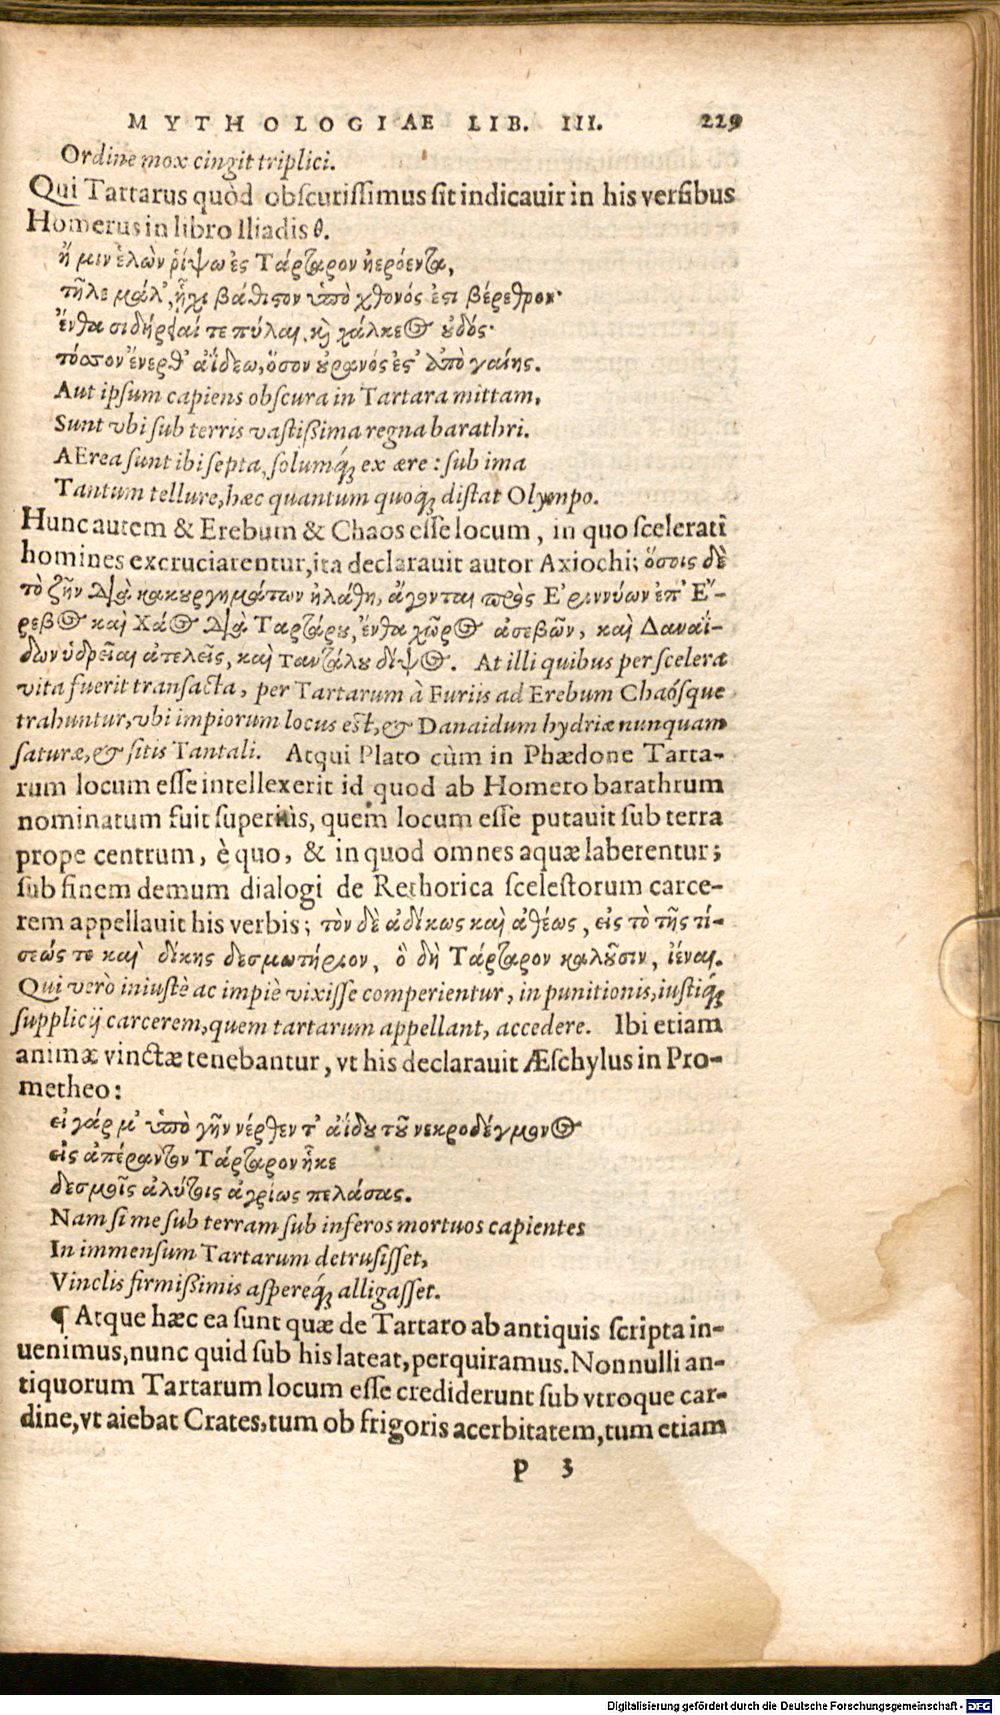 MYTHOLOGIAE LIB. III. 229
Ordine mox cingit triplici.
Qui Tartarus quòd obscurissimus sit indicauit in his versibus
Homerus in libro Iliadis θ.
ἤ μιν ἑλὼν ῥίψω ἐς Τάρταρον ἠερόεντα,
τῆλε μάλ', ἧχι βάθιστον ὑπὸ χθονός ἐστι βέρεθρον·
ἔνθα σιδήρειαί τε πύλαι, καὶ χάλκεος οὐδός·
τόσσον ἔνερθ' ἀΐδεω, ὅσον οὐρανός ἐς' ἀπὸ γαίης.
Aut ipsum capiens obscura in Tartara mittam.
Sunt vbi sub terris vastißima regna barathri.
AErea sunt ibi septa, solumq́; ex ære: sub ima
Tantum tellure, hæc quantum quoq́; distat Olympo.
Hunc autem & Erebum & Chaos esse locum, in quo scelerati
homines excruciarentur, ita declarauit autor Axiochi; ὅσοις δὲ
τὸ ζῆν διὰ κακουργημάτων ἠλάθη, ἄγονται πρὸς Ἐριννύων ἐπ' Ἔ-
ρεβος καὶ Χάος διὰ Ταρτάρου, ἔνθα χῶρος ἀσεβῶν, καὶ Δαναΐ-
δων ὑδρεῖαι ἀτελεῖς, καὶ τανταλου δίψος. At illi quibus per scelera
vita fuerit transacta, per Tartarum à Furiis ad Erebum Chaósque
trahuntur, vbi impiorum locus est, & Danaidum hydriæ nunquam
saturæ, & sitis Tantali. Atqui Plato cùm in Phædone Tarta-
rum locum esse intellexerit id quod ab Homero barathrum
nominatum fuit superiùs, quem locum esse putauit sub terra
prope centrum, è quo, & in quod omnes aquæ laberentur;
sub finem demum dialogi de Rethorica scelestorum carce-
rem appellauit his verbis; τὸν δὲ ἀδίκως καὶ ἀθέως, εἰς τὸ τῆς τί-
σεώς τε καὶ δίκης δεσμωτήριον, ὃ δὴ Τάρταρον καλοῦσιν, ἰέναι.
Qui verò iniustè ac impiè vixisse comperientur, in punitionis, iustiq́;
supplicij carcerem, quem tartarum appellant, accedere. Ibi etiam
animæ vinctæ tenebantur, vt his declarauit Æschylus in Pro-
metheo:
εἰ γάρ μ' ὑπὸ γῆν νέρθεν τ' ἀΐδου τοῦ νεκροδέγμονος
εἰς ἀπέραντον Τάρταρον ἧκε
δεσμοῖς ἀλύτοις ἀγρίως πελάσας.
Nam si me sub terram sub inferos mortuos capientes
In immensum Tartarum detrusisset,
Vinclis firmißimis aspereq́; alligasset.
¶ Atque hæc ea sunt quæ de Tartaro ab antiquis scripta in-
uenimus, nunc quid sub his lateat, perquiramus. Nonnulli an-
tiquorum Tartarum locum esse crediderunt sub vtroque car-
dine, vt aiebat Crates, tum ob frigoris acerbitatem, tum etiam
p 3
Digitalisierung gefördert durch die Deutsche Forschungsgemeinschaft - DFG